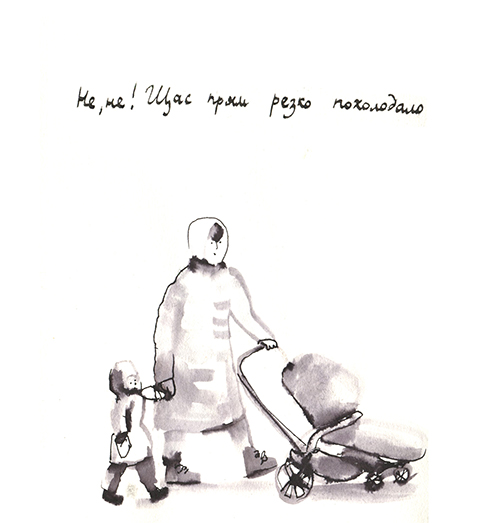 Не, не! Щас прям резко похолодало